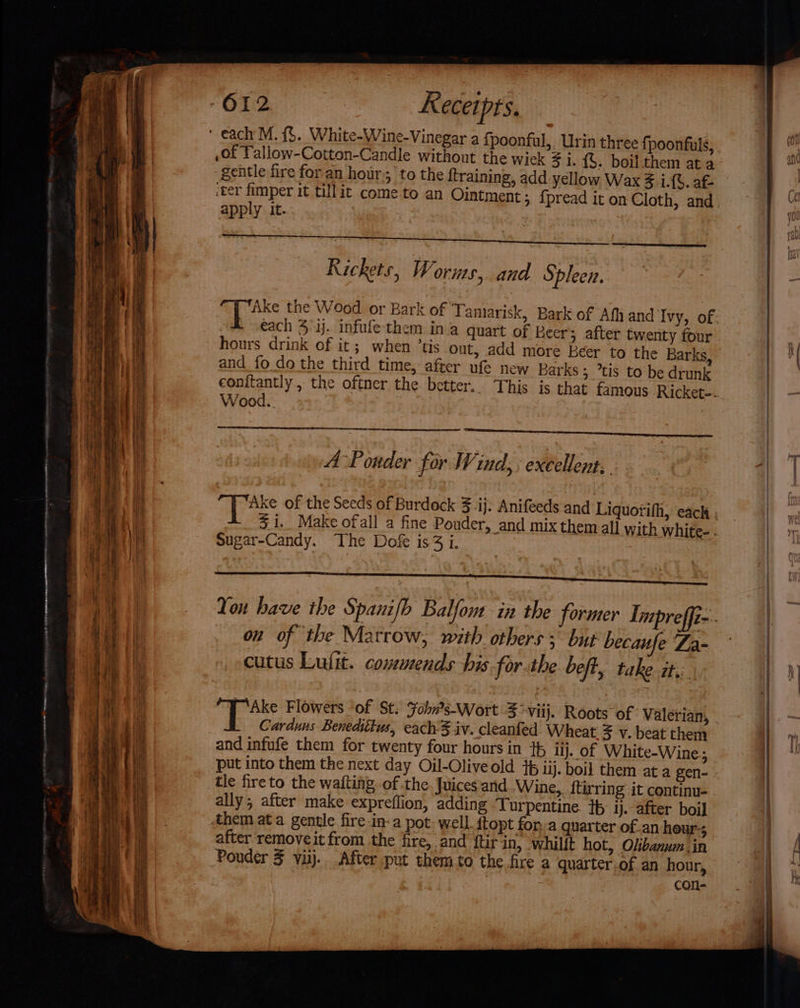 612 Receipts.
each M. ſS. White-Wine-Vinegar a ſpoonful, Urin three ſpoonfuls,
of Tallow-Cotton-Candle without the wick ℥ i. ſS. boil them at a
gentle fire for an hour; to the ſtraining, add yellow Wax ℥ i.ſS. af-
ter ſimper it till it come to an Ointment; ſpread it on Cloth, and
apply it.
Rickets, Worms, and Spleen.
TAke the Wood or Bark of Tamarisk, Bark of Aſh and Ivy, of
each ℥ ij. infuſe them in a quart of Beer; after twenty four
hours drink of it; when 'tis out, add more Beer to the Barks,
and ſo do the third time, after uſe new Barks; 'tis to be drunk
conſtantly, the oftner the better. This is that famous Ricket-
Wood.
A Pouder for Wind, excellent.
TAke of the Seeds of Burdock ℥ ij. Aniſeeds and Liquoriſh, each
℥ i. Make of all a fine Pouder, and mix them all with white-
Sugar-Candy. The Doſe is ʒ i.
You have the Spaniſh Balſom in the former Impreſſi-
on of the Marrow, with others; but becauſe Za-
cutus Luſit. commends his for the beſt, take it.
TAke Flowers of St. John's-Wort ℥ viij. Roots of Valerian,
Carduus Benedictus, each ℥ iv. cleanſed Wheat ℥ v. beat them
and infuſe them for twenty four hours in ℔ iij. of White-Wine;
put into them the next day Oil-Olive old ℔ iij. boil them at a gen-
tle fire to the waſting of the Juices and Wine, ſtirring it continu-
ally; after make expreſſion, adding Turpentine ℔ ij. after boil
them at a gentle fire in a pot well ſtopt for a quarter of an hour;
after remove it from the fire, and ſtir in, whilſt hot, Olibanum in
Pouder ℥ viij. After put them to the fire a quarter of an hour,
con-